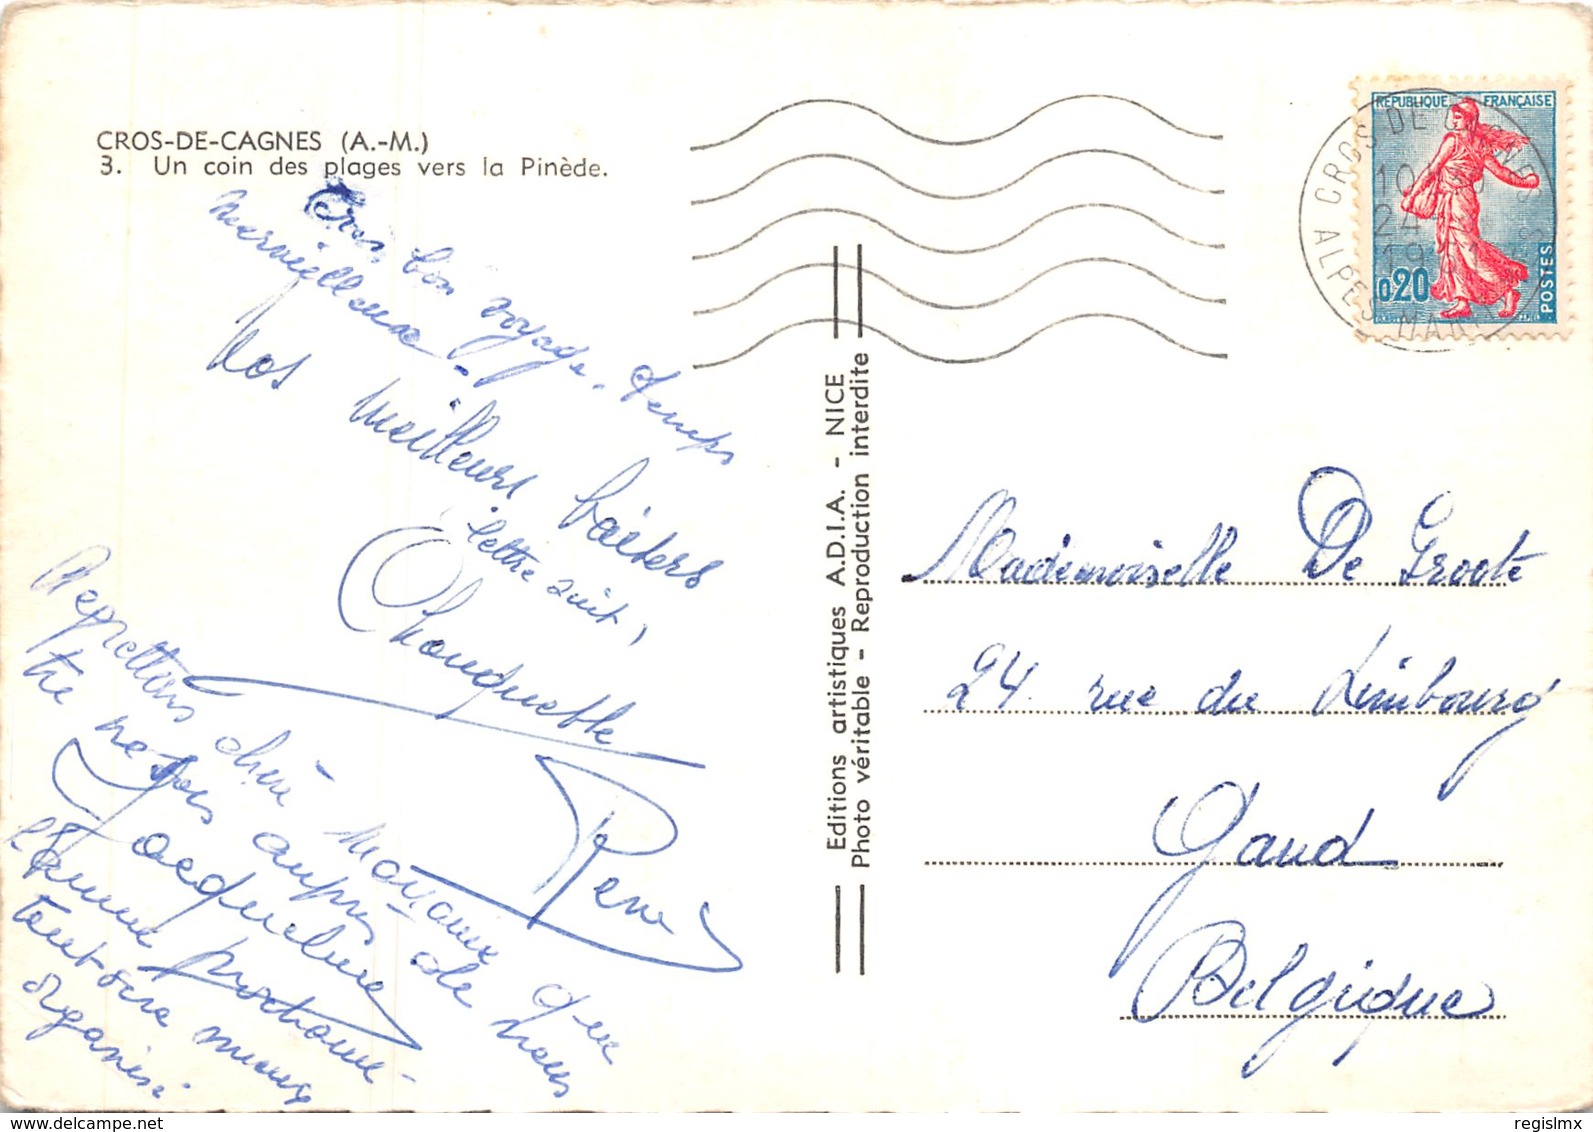 CROS-DE-CAGNES (A.-M.)
3. Un coin des plages vers la Pinède.
Très bon voyage, temps
merveilleux -
Nos meilleurs baisers
(lettre suit)
Chouquette
René
Jacqueline
Regrettons chère Moxane que
tu ne sois auprès de nous
l'année prochaine -
tout sera mieux
organisé.
Editions artistiques A.D.I.A. - NICE
Photo véritable - Reproduction interdite
REPUBLIQUE FRANÇAISE
0,20
POSTES
CROS DE CAGNES
ALPES MAR
10
24
19
Mademoiselle De Groote
24 rue du Limbourg
Gand
Belgique
delcampe.net
regislmx